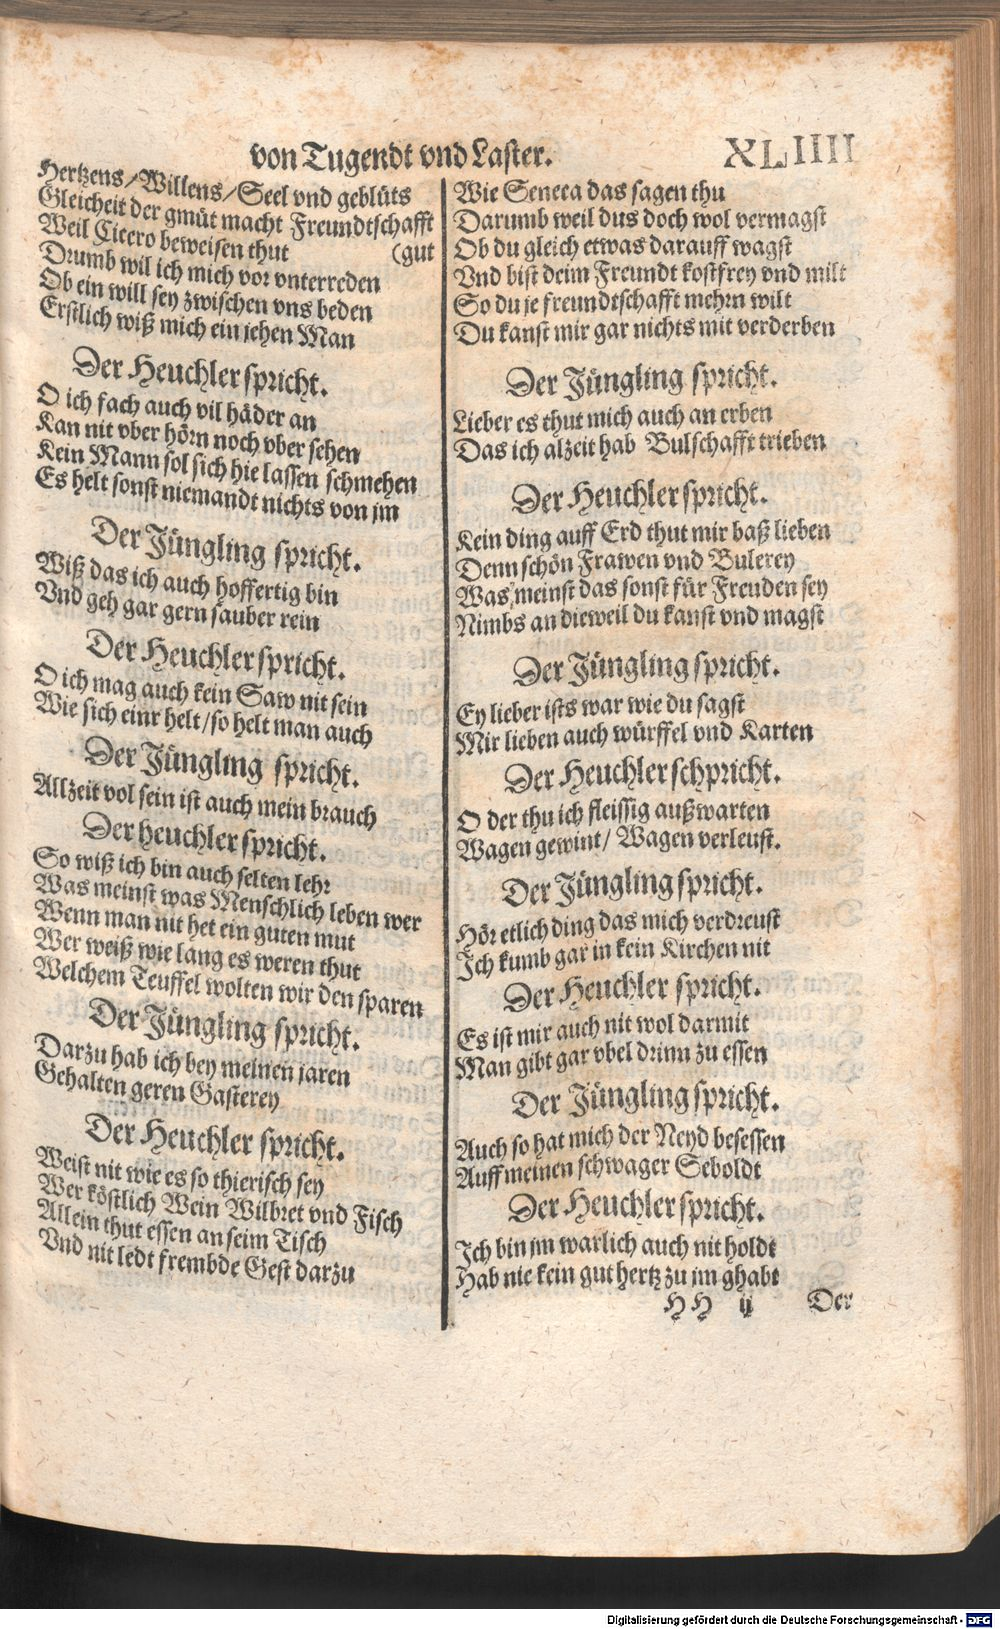 von Tugendt vnd Laster.
XLIIII
Hertzens/Willens/Seel vnd geblüts
Gleicheit der gmüt macht Freundtschafft
Weil Cicero beweisen thut (gut
Drumb wil ich mich vor vnterreden
Ob ein will sey zwischen vns beden
Erstlich wiß mich ein jehen Man
Der Heuchler spricht.
O ich fach auch vil häder an
Kan nit vber hörn noch vber sehen
Kein Mann sol sich hie lassen schmehen
Es helt sonst niemandt nichts von jm
Der Jüngling spricht.
Wiß das ich auch hoffertig bin
Vnd geh gar gern sauber rein
Der Heuchler spricht.
O ich mag auch kein Saw nit sein
Wie sich einr helt/so helt man auch
Der Jüngling spricht.
Allzeit vol sein ist auch mein brauch
Der heuchler spricht.
So wiß ich bin auch selten lehr
Was meinst was Menschlich leben wer
Wenn man nit het ein guten mut
Wer weiß wie lang es weren thut
Welchem Teuffel wolten wir den sparen
Der Jüngling spricht.
Darzu hab ich bey meinen jaren
Gehalten geren Gasterey
Der Heuchler spricht.
Weist nit wie es so thierisch sey
Wer köstlich Wein Wilbret vnd Fisch
Allein thut essen an seim Tisch
Vnd nit ledt frembde Gest darzu
Wie Seneca das sagen thu
Darumb weil dus doch wol vermagst
Ob du gleich etwas darauff wagst
Vnd bist deim Freundt kostfrey vnd milt
So du je freundtschafft mehrn wilt
Du kanst mir gar nichts mit verderben
Der Jüngling spricht.
Lieber es thut mich auch an erben
Das ich alzeit hab Bulschafft trieben
Der Heuchler spricht.
Kein ding auff Erd thut mir baß lieben
Denn schön Frawen vnd Bulerey
Was meinst das sonst für Freuden sey
Nimbs an dieweil du kanst vnd magst
Der Jüngling spricht.
Ey lieber ists war wie du sagst
Mir lieben auch würffel vnd Karten
Der Heuchler schpricht.
O der thu ich fleissig außwarten
Wagen gewint/ Wagen verleust.
Der Jüngling spricht.
Hör etlich ding das mich verdreust
Ich kumb gar in kein Kirchen nit
Der Heuchler spricht.
Es ist mir auch nit wol darmit
Man gibt gar vbel drinn zu essen
Der Jüngling spricht.
Auch so hat mich der Neyd besessen
Auff meinen schwager Seboldt
Der Heuchler spricht.
Ich bin jm warlich auch nit holdt
Hab nie kein gut hertz zu jm ghabt
HH ij Der
Digitalisierung gefördert durch die Deutsche Forschungsgemeinschaft - DFG